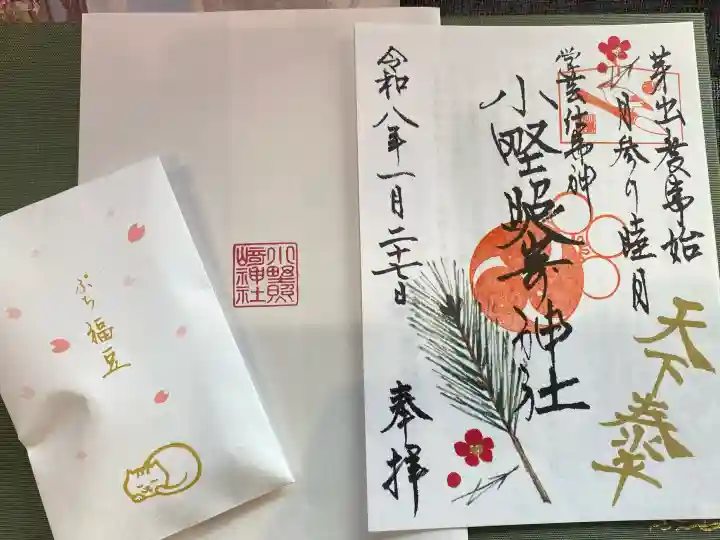 芽出度事始
月参り睦月
天下泰平
学芸仕事神
小野照嵜神社
令和八年一月二十七日
奉拝
小野照
崎神社
ぷち福豆